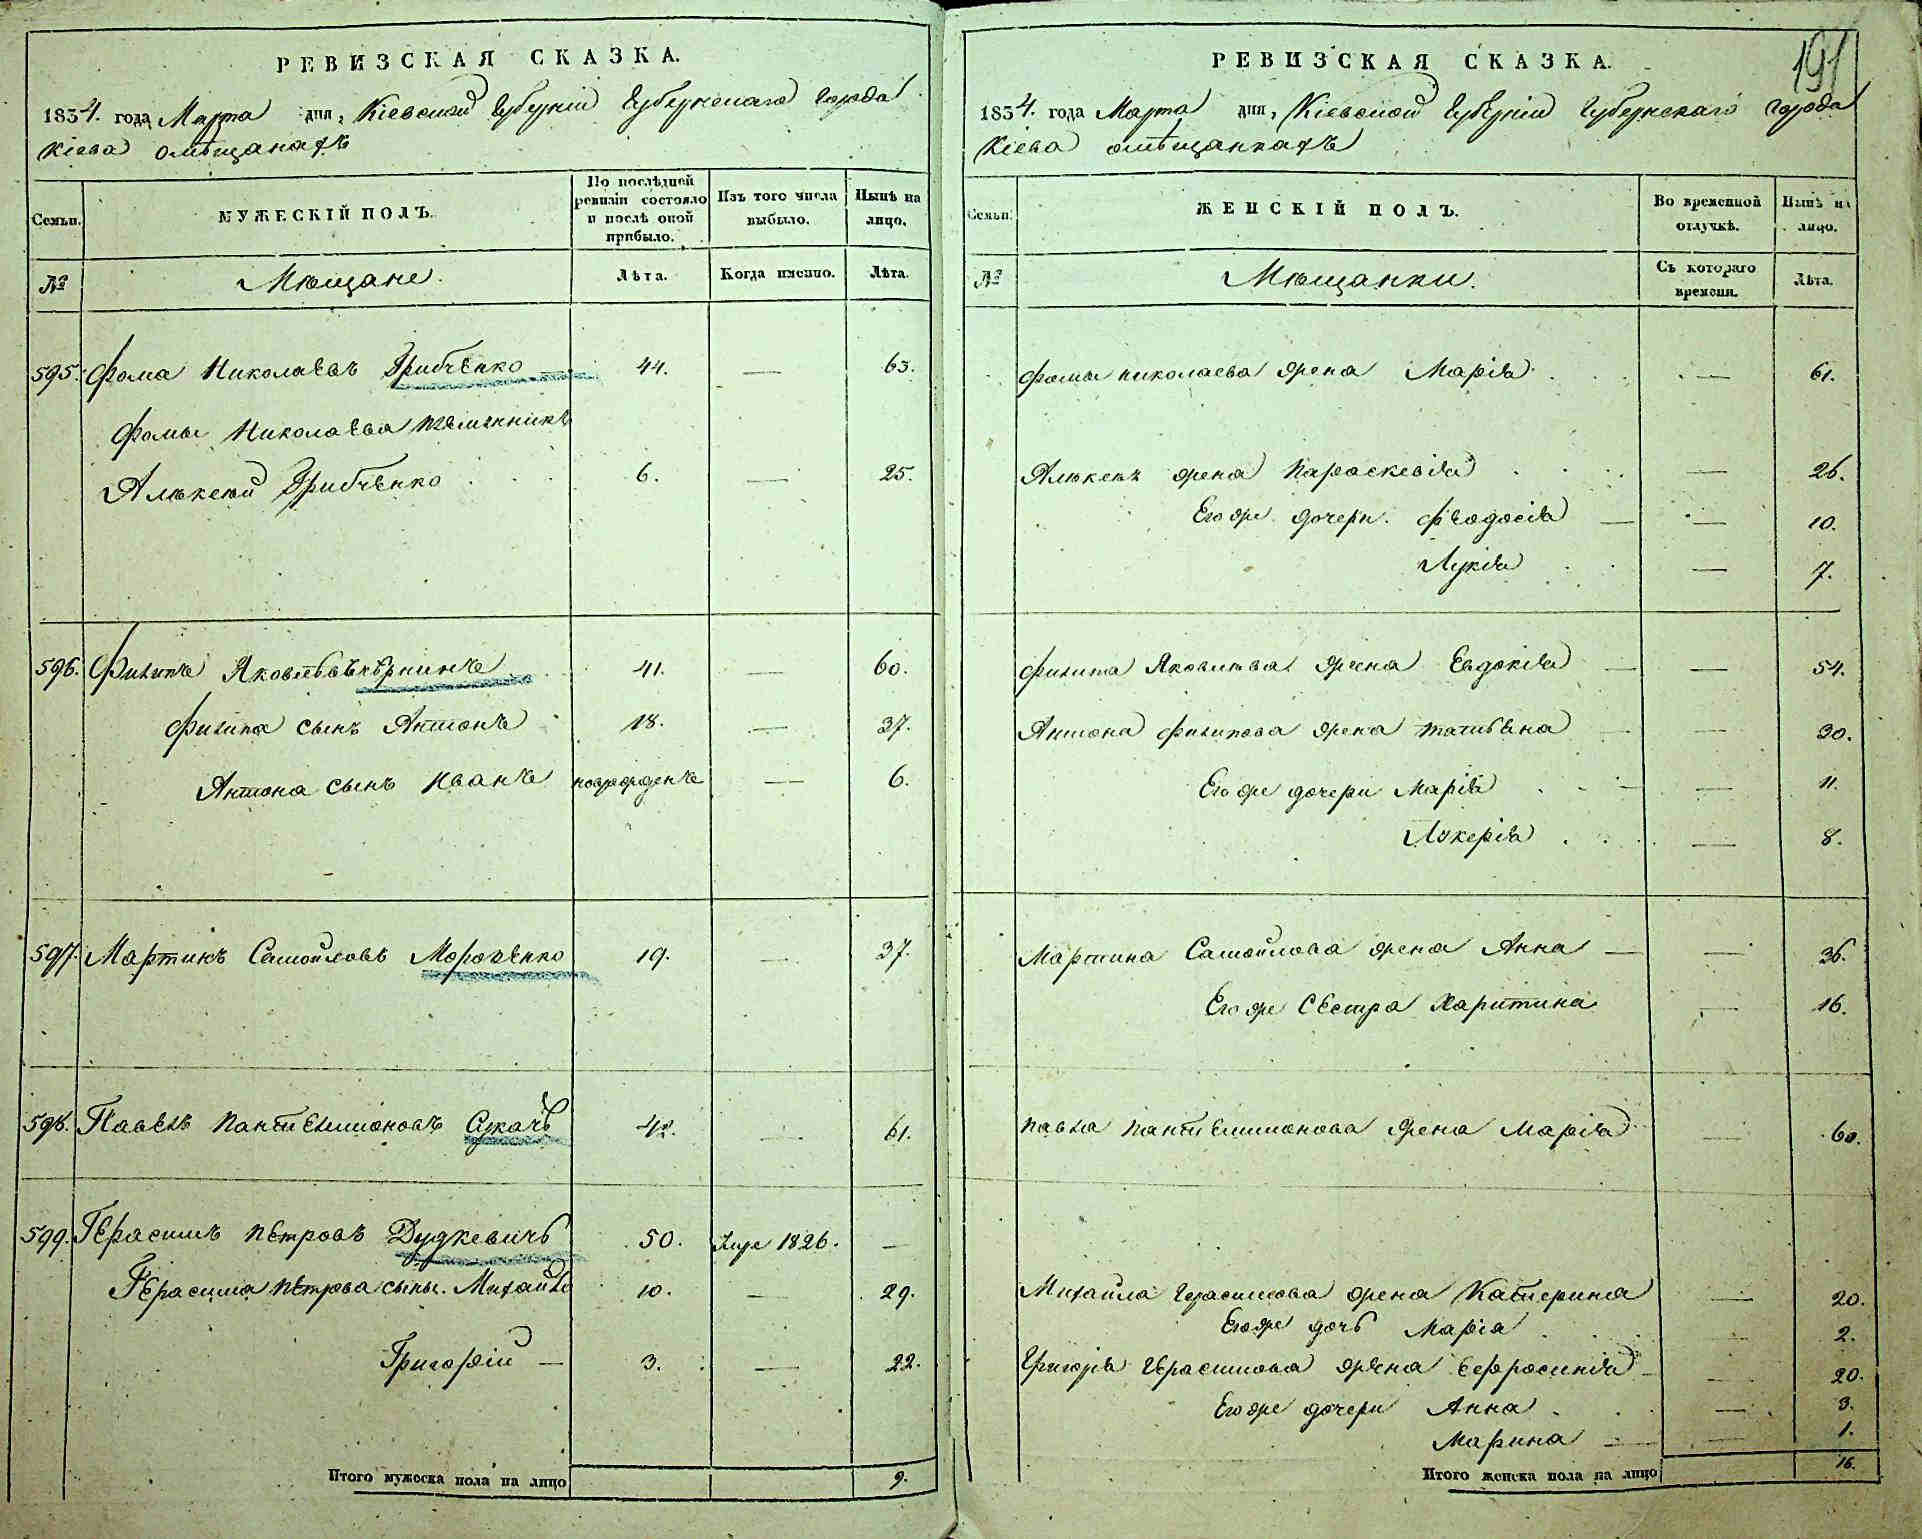 РЕВИЗСКАЯ СКАЗКА.
1834. года Марта дня, Кіевской Губерніи Губернскаго города
Кіева омѣщанахъ
Семьи.
МУЖЕСКІЙ ПОЛЪ.
По послѣдней ревизіи состояло и послѣ оной прибыло.
Изъ того числа выбыло.
Нынѣ на лицо.
№
Мѣщане.
Лѣта.
Когда именно.
Лѣта.
595. Фома Николаевъ Грибченко 44. — 63.
Фомы Николаева племянникъ
Алѣксѣй Грибченко 6. — 25.
596. Филипъ Яковлевъ 41. — 60.
Филипа сынъ Антонъ 18. — 37.
Антона сынъ Иванъ новорожденъ — 6.
597. Мартинъ Самойловъ 19. — 37.
598. Павелъ Пантелимоновъ 42. — 61.
599. Герасимъ Петровъ Дудкевичъ 50. 1826. —
Герасима Петрова сыны. Михайло 10. — 29.
Григорій — 3. — 22.
Итого мужеска пола на лицо 9.
191
РЕВИЗСКАЯ СКАЗКА.
1834. года Марта дня, Кіевской Губерніи Губернскаго города
Кіева омѣщанкахъ
Семьи.
ЖЕНСКІЙ ПОЛЪ.
Во временной отлучкѣ.
Нынѣ на лицо.
№
Мѣщанки.
Съ котораго времени.
Лѣта.
Фомы Николаева жена Марія — 61.
Алѣксѣя жена Параскевія — 26.
Его же дочери Феодосія — — 10.
Лукія — 7.
Филипа Яковлева жена Евдокія — — 54.
Антона Филипова жена Татьяна — — 30.
Его же дочери Марія — — 11.
Лукерія — 8.
Мартина Самойлова жена Анна — — 36.
Его же сестра Харитина — 16.
Павла Пантелимонова жена Марія — 60.
Михайла Герасимова жена Катерина — 20.
Его же дочь Марія — 2.
Григорія Герасимова жена Ефросинія — — 20.
Его же дочери Анна — 3.
Марина — — 1.
Итого женска пола на лицо 16.